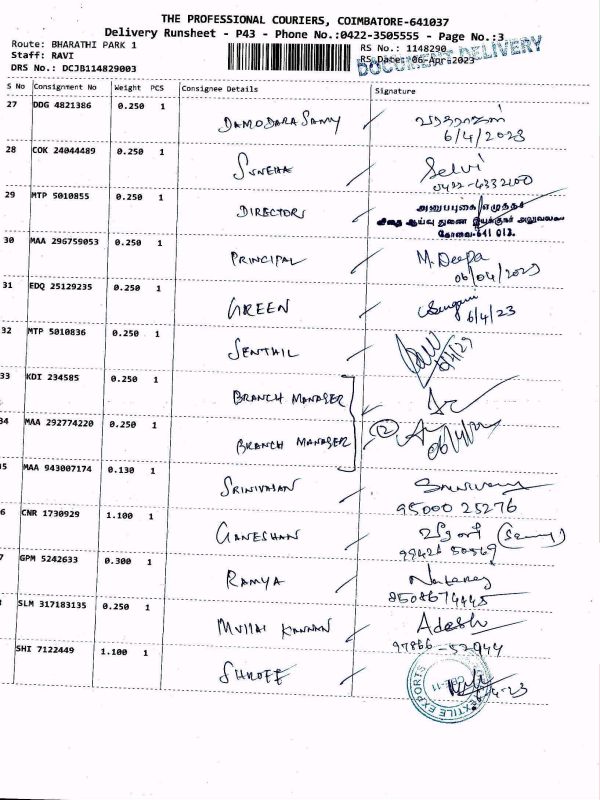 THE PROFESSIONAL COURIERS, COIMBATORE-641037
Delivery Runsheet - P43 - Phone No.:0422-3505555 - Page No.:3
Route: BHARATHI PARK 1
RS No.: 1148290
Staff: RAVI
RS Date: 06-Apr-2023
DOCUMENT DELIVERY
DRS No.: DCJB114829003
S No Consignment No Weight PCS Consignee Details Signature
27 DDG 4821386 0.250 1 DAMODARA SAMY /
6/4/2023
28 COK 24044489 0.250 1 SUNEHA / Selvi
0422-4332100
29 MTP 5010855 0.250 1 DIRECTOR /
கோவை-641 013.
30 MAA 296759053 0.250 1 PRINCIPAL / M. Deepa
06/04/2023
31 EDQ 25129235 0.250 1 GREEN /
6/4/23
32 MTP 5010836 0.250 1 SENTHIL /
33 KDI 234585 0.250 1 BRANCH MANAGER /
34 MAA 292774220 0.250 1 BRANCH MANAGER / 2
5 MAA 943007174 0.130 1 SRINIVASAN /
95000 25276
6 CNR 1730929 1.100 1 GANESHAN /
99426 50569
7 GPM 5242633 0.300 1 RAMYA /
8508674445
SLM 317183135 0.250 1 MULLAI KANNAN / Adesh
97866-52944
SHI 7122449 1.100 1 SHROFF /
TEXTILE EXPORTS